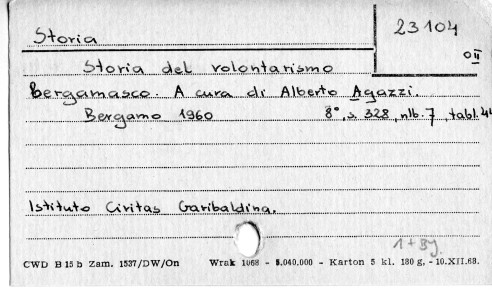 Storia
23104
OII
Storia del volontarismo
Bergamasco. A cura di Alberto Agazzi.
Bergamo 1960 8°, s. 328, nlb. 7, tabl. 44
Istituto Civitas Garibaldina.
1 + By.
CWD B 15 b Zam. 1537/DW/On Wrak 1068 - 5.040.000 - Karton 5 kl. 180 g, - 10.XII.68.